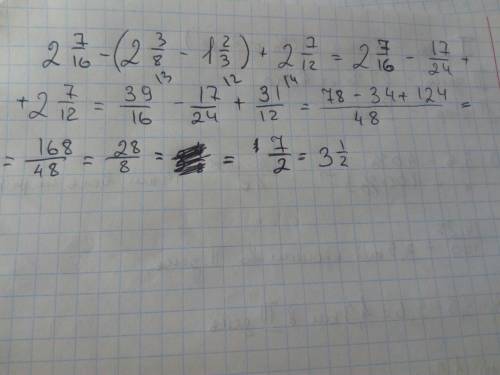 2 7/16 - (2 3/8 - 1 2/3) + 2 7/12 = 2 7/16 - 17/24 +
+ 2 7/12 = 39/16 \3 - 17/24 \2 + 31/12 \4 = (78 - 34 + 124)/48 =
= 168/48 = 28/8 = = 7/2 = 3 1/2